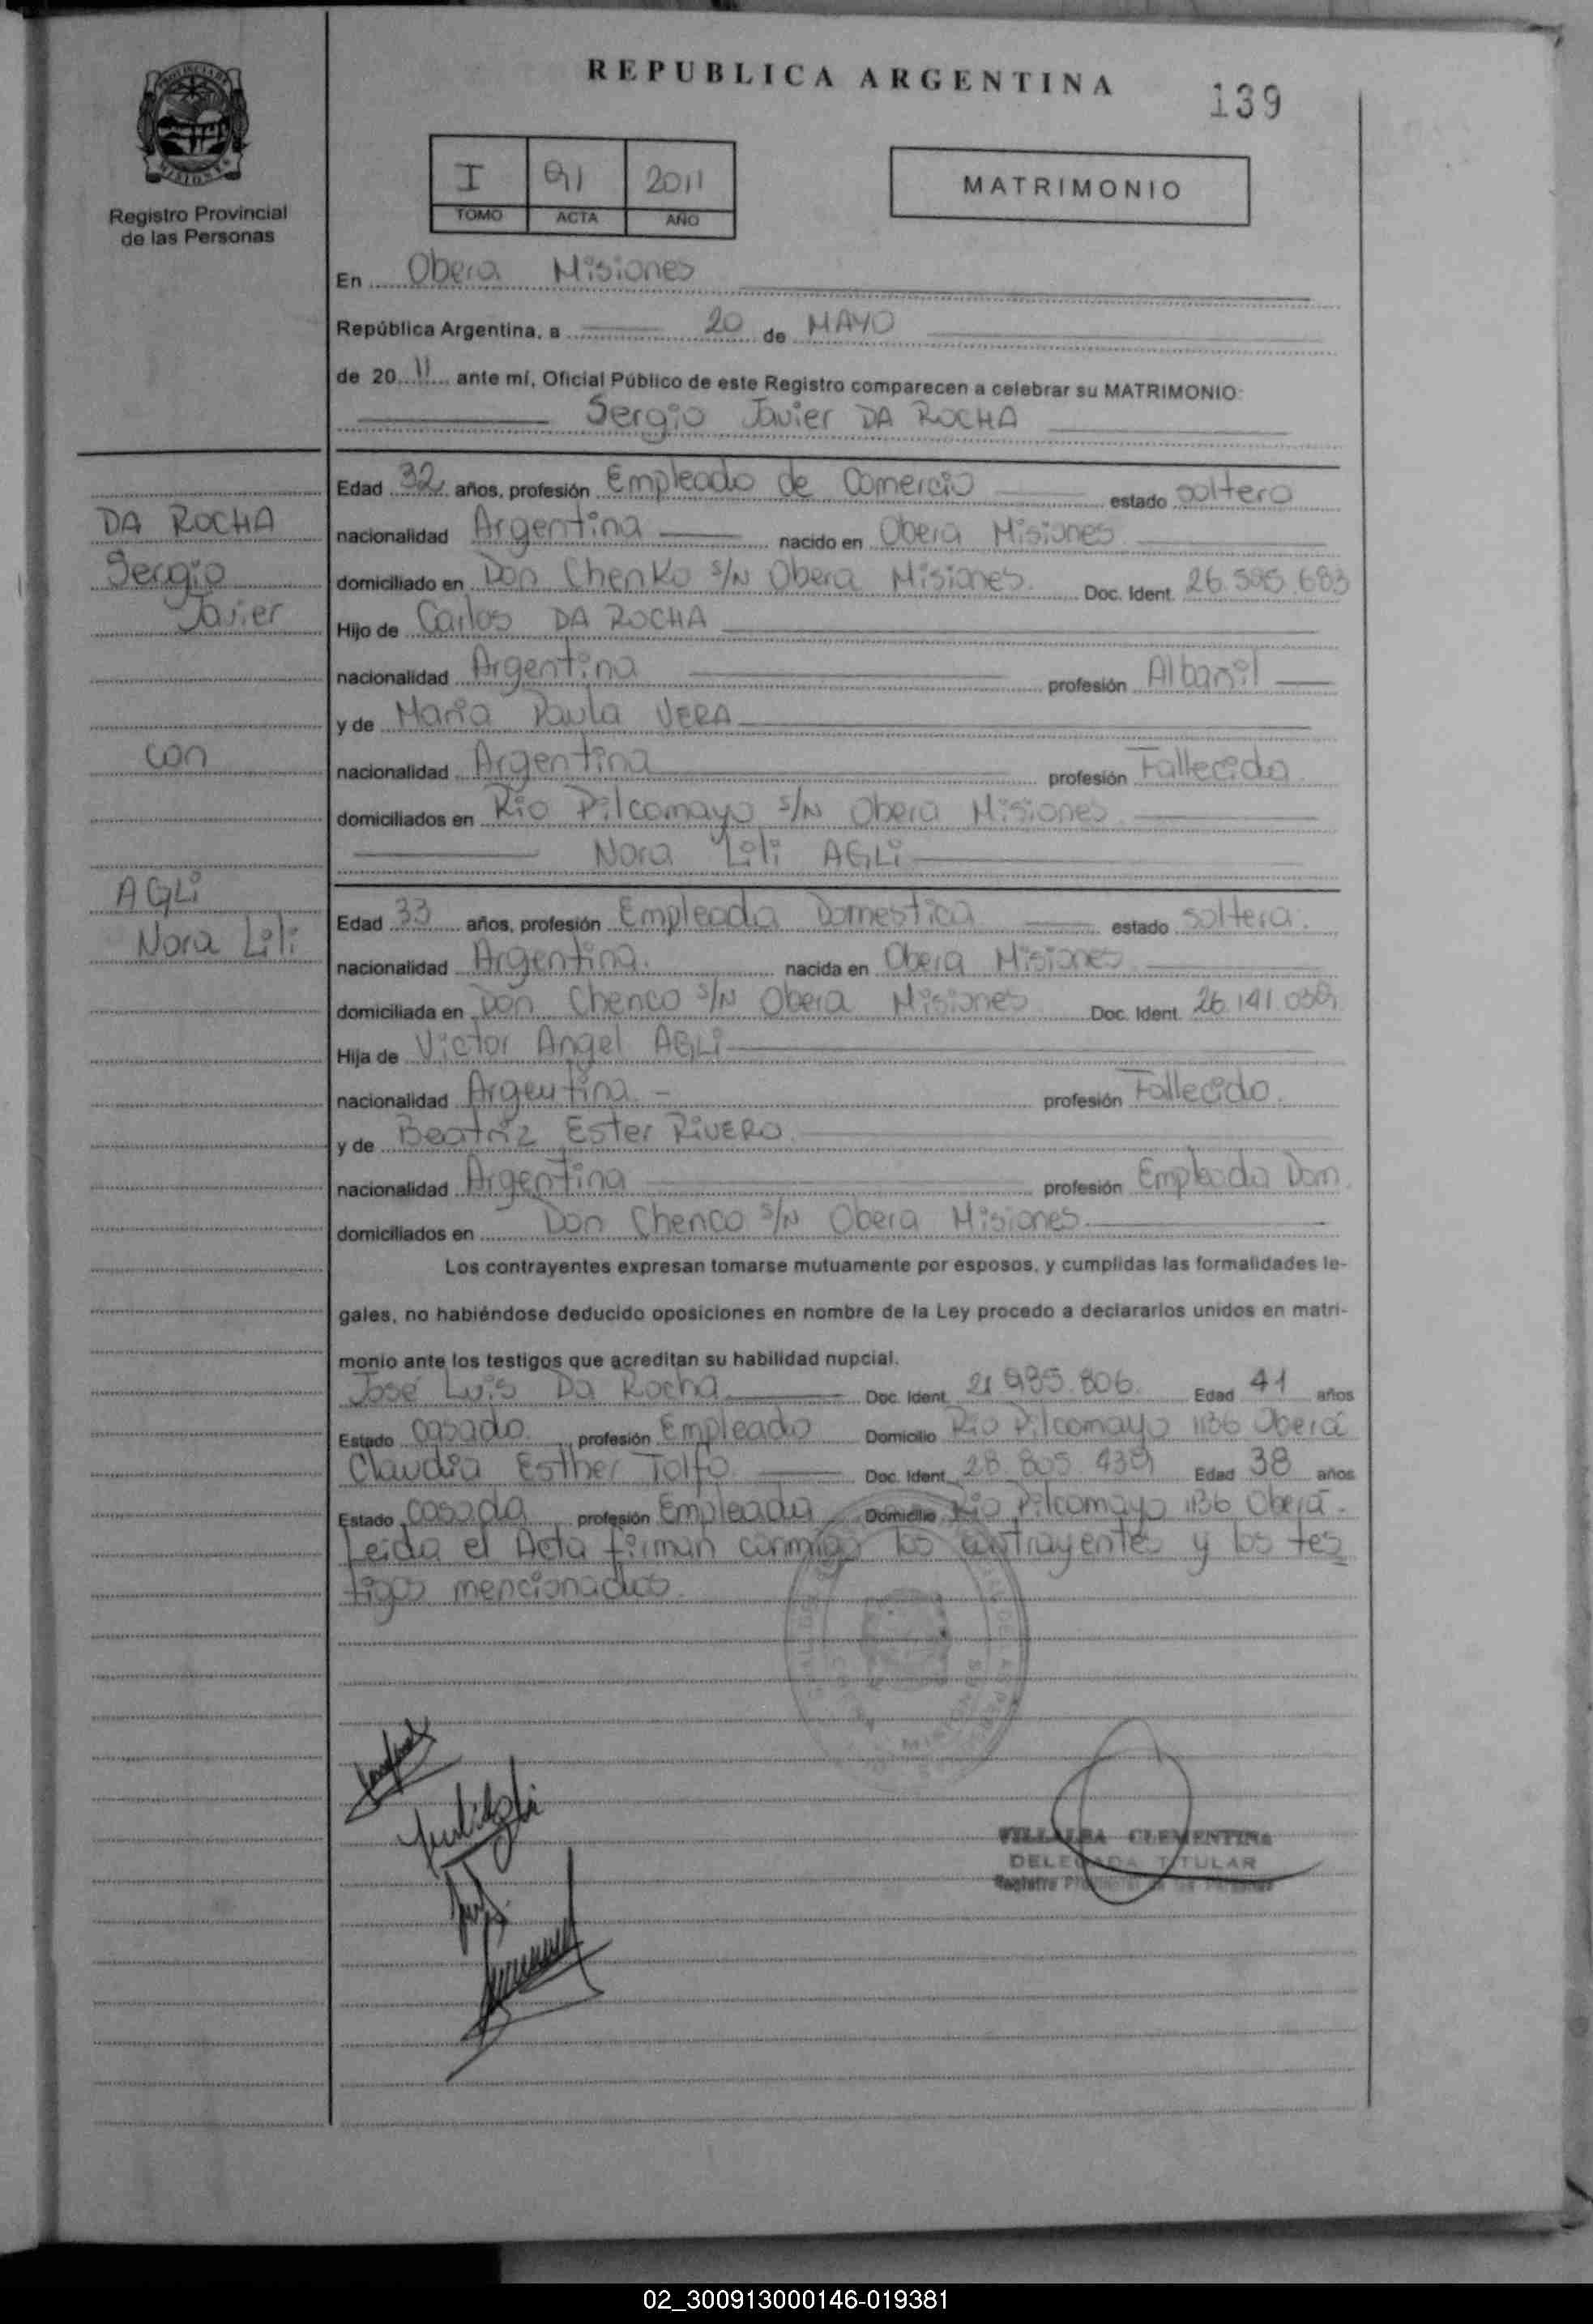 REPUBLICA ARGENTINA
139
PROVINCIA DE
MISIONES
Registro Provincial
de las Personas
I 91 2011
TOMO ACTA AÑO
MATRIMONIO
En Obera Misiones
República Argentina, a 20 de MAYO
de 20 11 ante mí, Oficial Público de este Registro comparecen a celebrar su MATRIMONIO:
Sergio Javier DA ROCHA
DA ROCHA
Sergio
Javier
con
AGLI
Nora Lili
Edad 32 años, profesión Empleado de Comercio estado soltero
nacionalidad Argentina nacido en Obera Misiones
domiciliado en Don Chenko s/N Obera Misiones Doc. Ident. 26.595.683
Hijo de Carlos DA ROCHA
nacionalidad Argentina profesión Albañil
y de Maria Paula VERA
nacionalidad Argentina profesión Fallecida
domiciliados en Rio Pilcomayo s/N Obera Misiones
Nora Lili AGLI
Edad 33 años, profesión Empleada Domestica estado soltera.
nacionalidad Argentina. nacida en Obera Misiones
domiciliada en Don Chenco s/N Obera Misiones Doc. Ident. 26.141.039
Hija de Victor Angel AGLI
nacionalidad Argentina profesión Fallecido.
y de Beatriz Ester RIVERO.
nacionalidad Argentina profesión Empleada Dom.
domiciliados en Don Chenco s/N Obera Misiones
Los contrayentes expresan tomarse mutuamente por esposos, y cumplidas las formalidades le-
gales, no habiéndose deducido oposiciones en nombre de la Ley procedo a declararlos unidos en matri-
monio ante los testigos que acreditan su habilidad nupcial.
José Luis Da Rocha Doc. Ident. 21 985.806. Edad 41 años
Estado casado. profesión Empleado Domicilio Rio Pilcomayo 1136 Oberá
Claudia Esther Tolfo Doc. Ident. 28.805.439 Edad 38 años
Estado casada profesión Empleada Domicilio Rio Pilcomayo 1136 Oberá.
Leida el Acta firman conmigo los contrayentes y los tes
tigos mencionados.
VILLALBA CLEMENTINA
DELEGADA TITULAR
Registro Provincial de las Personas
02_300913000146-019381